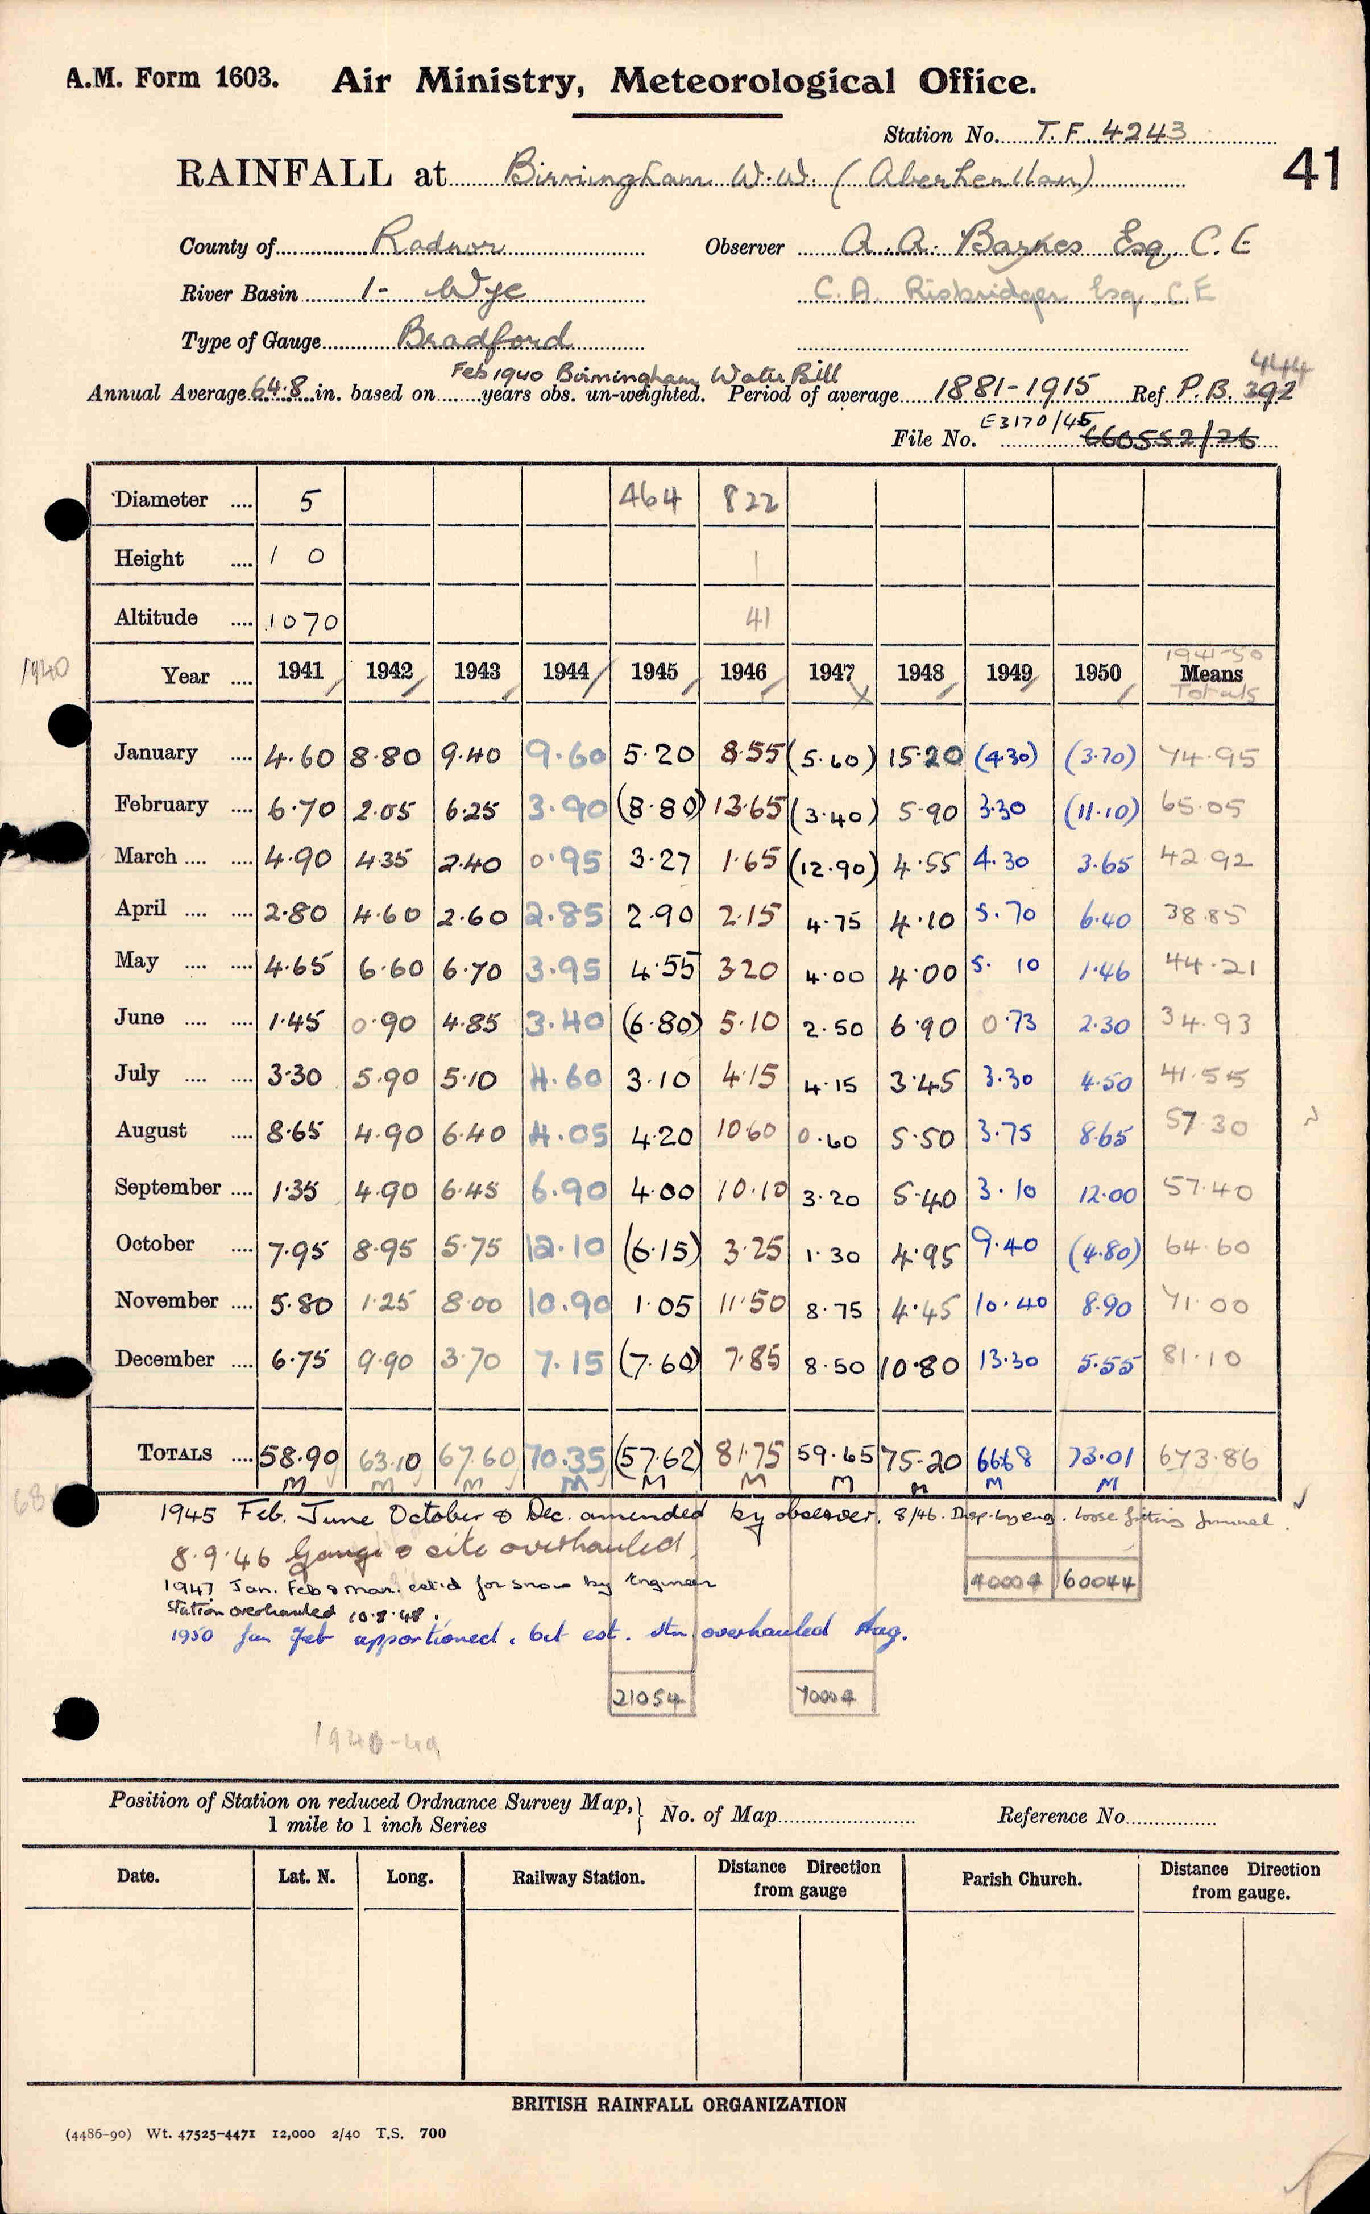 A.M. Form 1603. Air Ministry, Meteorological Office.
Station No. T.F. 4243
41
RAINFALL at Birmingham W.W. (Aberhenllan)
County of Radnor Observer A. A. Barnes Esq. C.E
River Basin 1- Wye C.A. Risbridger Esq. C.E
Type of Gauge Bradford
Feb 1940 Birmingham Water Bill 444
Annual Average 64.8 in. based on years obs. un-weighted. Period of average 1881-1915 Ref P.B. 392
File No. E3170/45 660552/26
Diameter 5 464 822
Height 1 0 1
Altitude 1070 41
1940 Year 1941 1942 1943 1944 1945 1946 1947 1948 1949 1950 1941-50 Means Totals
January 4.60 8.80 9.40 9.60 5.20 8.55 (5.60) 15.20 (4.30) (3.70) 74.95
February 6.70 2.05 6.25 3.90 (8.80) 13.65 (3.40) 5.90 3.30 (11.10) 65.05
March 4.90 4.35 2.40 0.95 3.27 1.65 (12.90) 4.55 4.30 3.65 42.92
April 2.80 4.60 2.60 2.85 2.90 2.15 4.75 4.10 5.70 6.40 38.85
May 4.65 6.60 6.70 3.95 4.55 3.20 4.00 4.00 5.10 1.46 44.21
June 1.45 0.90 4.85 3.40 (6.80) 5.10 2.50 6.90 0.73 2.30 34.93
July 3.30 5.90 5.10 4.60 3.10 4.15 4.15 3.45 3.30 4.50 41.55
August 8.65 4.90 6.40 4.05 4.20 10.60 0.60 5.50 3.75 8.65 57.30
September 1.35 4.90 6.45 6.90 4.00 10.10 3.20 5.40 3.10 12.00 57.40
October 7.95 8.95 5.75 12.10 (6.15) 3.25 1.30 4.95 9.40 (4.80) 64.60
November 5.80 1.25 8.00 10.90 1.05 11.50 8.75 4.45 10.40 8.90 71.00
December 6.75 9.90 3.70 7.15 (7.60) 7.85 8.50 10.80 13.30 5.55 81.10
TOTALS 58.90 63.10 67.60 70.35 (57.62) 81.75 59.65 75.20 66.68 73.01 673.86
M M M M M M M M M M
1945 Feb. June October & Dec. amended by observer. 8/46. loose fitting funnel.
8.9.46 Gauge & site overhauled.
1947 Jan. Feb & Mar. est'd for snow by Engineer
40004 60044
Station overhauled 10.8.48.
1950 Jan Feb apportioned. Oct est. stn overhauled Aug.
21054 70004
1940-49
Position of Station on reduced Ordnance Survey Map, 1 mile to 1 inch Series } No. of Map Reference No.
Date. Lat. N. Long. Railway Station. Distance Direction from gauge Parish Church. Distance Direction from gauge.
BRITISH RAINFALL ORGANIZATION
(4486-90) Wt. 47525-4471 12,000 2/40 T.S. 700